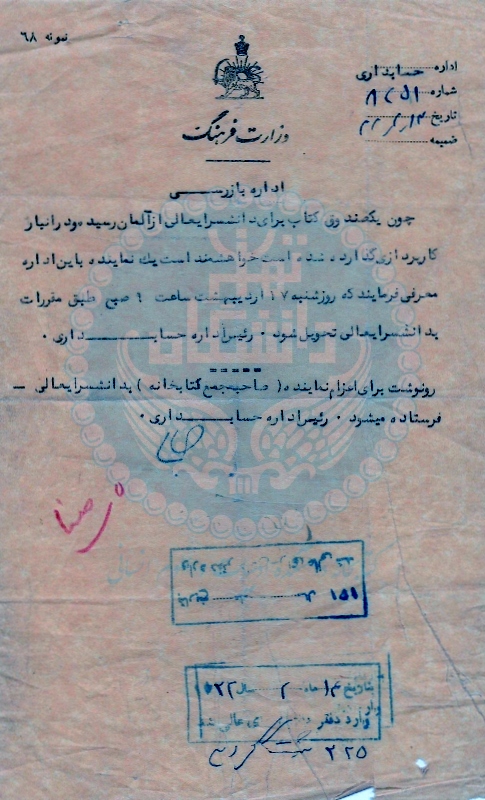 نمونه ۶۸
اداره حسابداری
شماره ۸۲۵۱
تاریخ ۲۲٫۲٫۱۴
ضمیمه
وزارت فرهنگ
اداره بازرسی
چون یکصندوق کتاب برای دانشسرایعالی از آلمان رسیده و در انبار
کاربردازی گذارده شده است خواهشمند است یك نماینده باین اداره
معرفی فرمایند که روز شنبه ۱۷ اردیبهشت ساعت ۹ صبح طبق مقررات
بدانشسرایعالی تحویل شود ۰ رئیس اداره حسابداری ۰
رونوشت برای اعزام نماینده ( صاحبجمع کتابخانه ) بدانشسرایعالی
فرستاده میشود ۰ رئیس اداره حسابداری ۰
وارد دفتر عالی شد
تاریخ ۱۵۱
بتاریخ ۱۴ ماه ۲ سال ۲۲
وارد دفتر عالی شد
۲۲۵